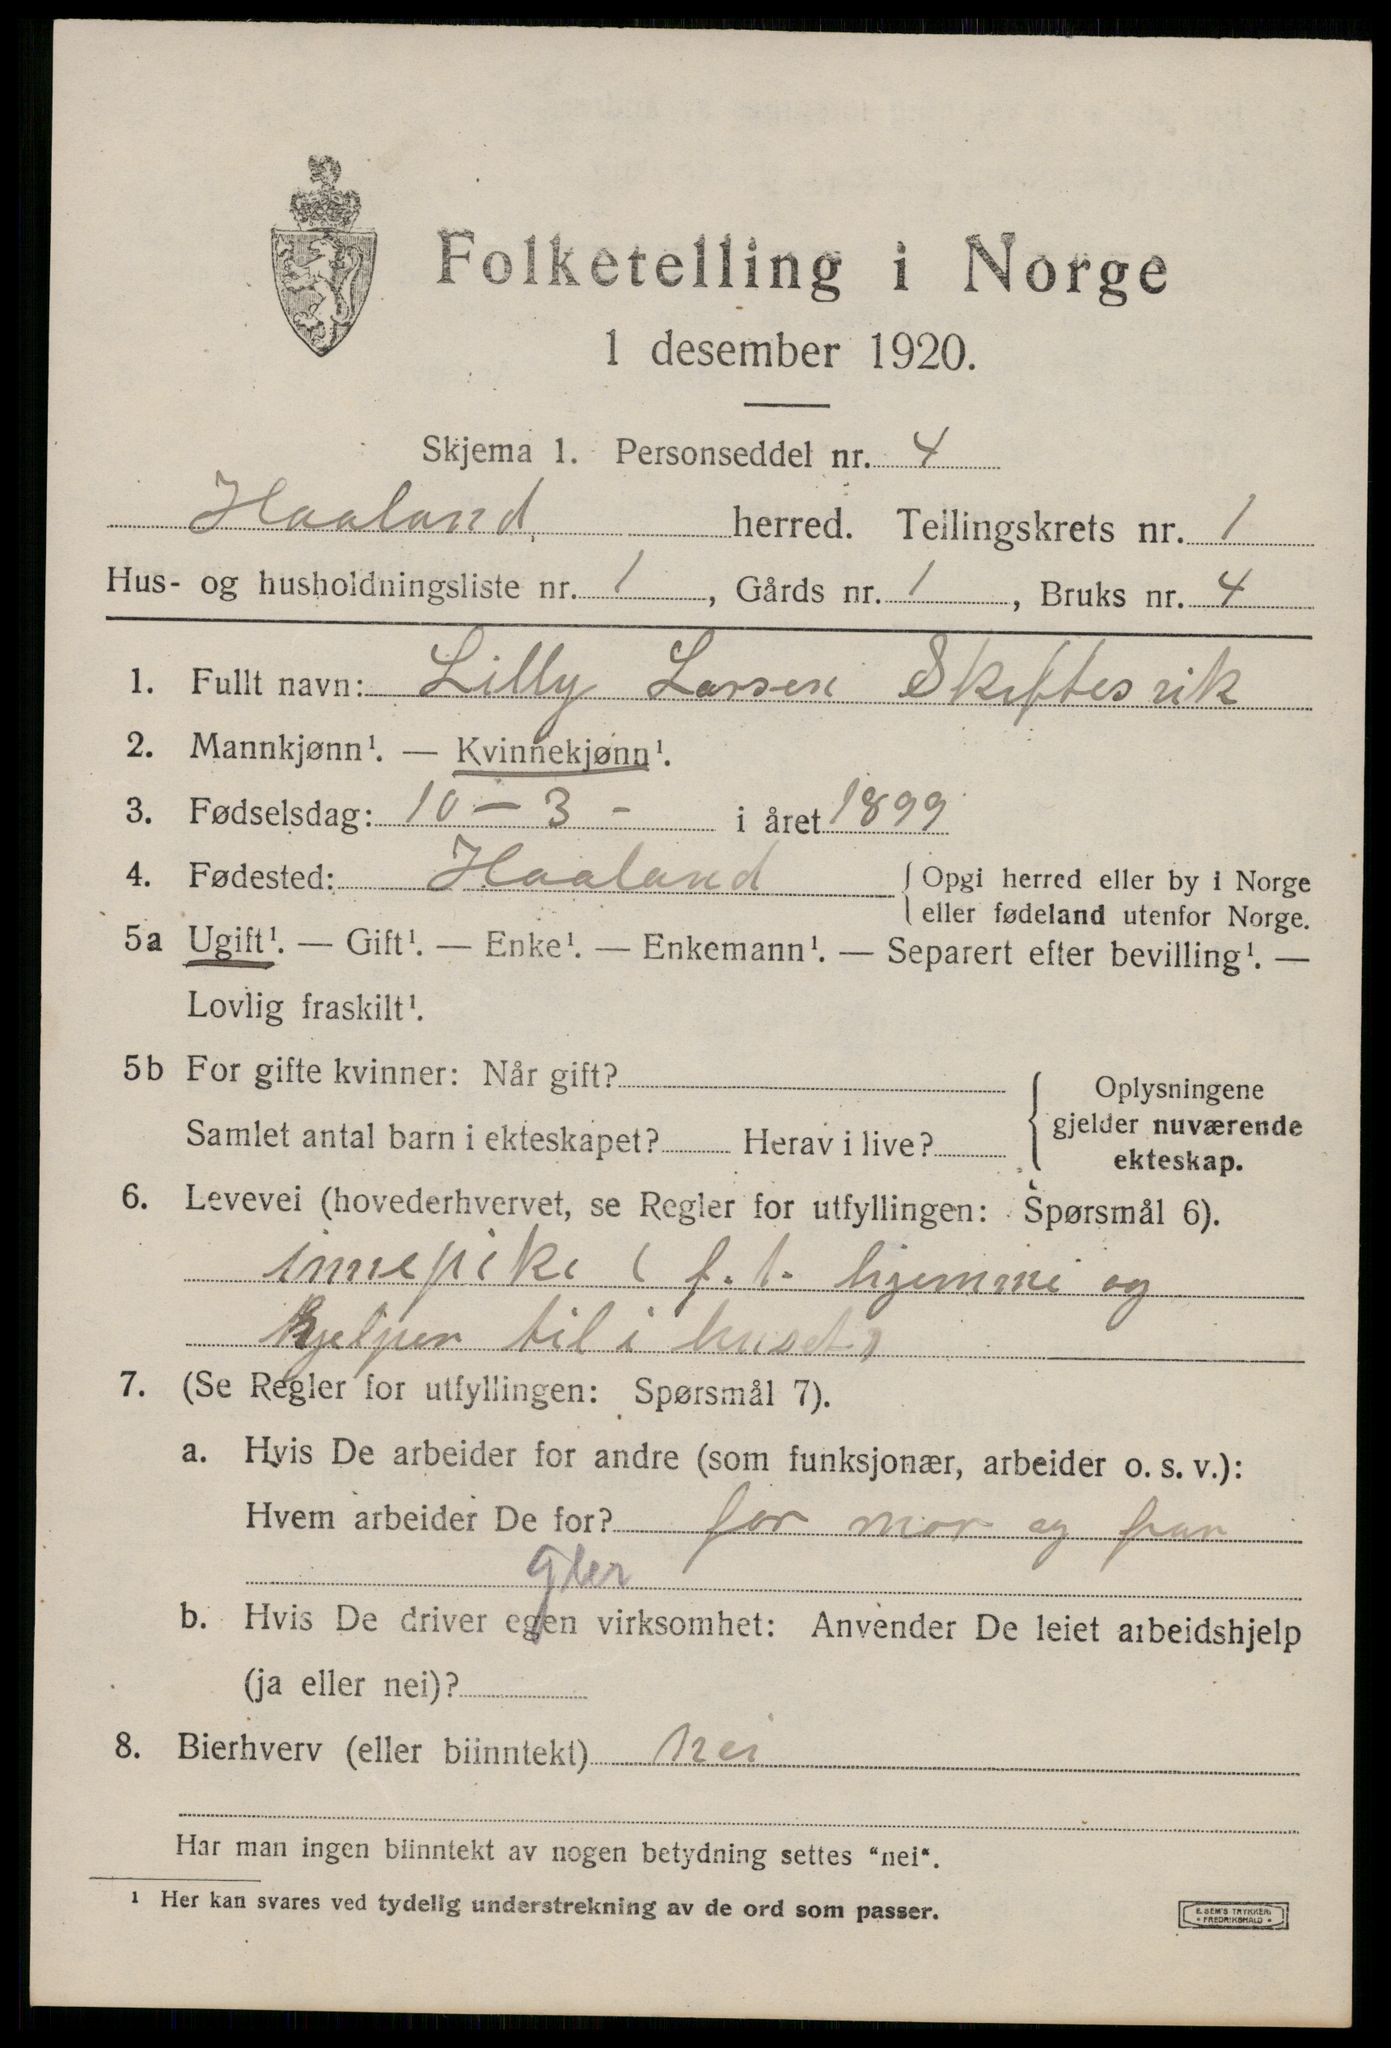 Folketelling i Norge
1 desember 1920.
Skjema 1. Personseddel nr. 4
Haaland herred. Tellingskrets nr. 1
Hus- og husholdningsliste nr. 1, Gårds nr. 1, Bruks nr. 4
1. Fullt navn: Lilly Larsen Skiftesvik
2. Mannkjønn¹. — Kvinnekjønn¹.
3. Fødselsdag: 10 - 3 - i året 1899
4. Fødested: Haaland { Opgi herred eller by i Norge
eller fødeland utenfor Norge.
5a Ugift¹. — Gift¹. — Enke¹. — Enkemann¹. — Separert efter bevilling¹. —
Lovlig fraskilt¹.
5b For gifte kvinner: Når gift?
Samlet antal barn i ekteskapet? Herav i live?
{ Oplysningene
gjelder nuværende
ekteskap.
6. Levevei (hovederhvervet, se Regler for utfyllingen: Spørsmål 6).
innepike ( f. t. hjemme og
hjelper til i huset)
7. (Se Regler for utfyllingen: Spørsmål 7).
a. Hvis De arbeider for andre (som funksjonær, arbeider o. s. v.):
Hvem arbeider De for? for mor og
b. Hvis De driver egen virksomhet: Anvender De leiet arbeidshjelp
(ja eller nei)?
8. Bierhverv (eller biinntekt) nei
Har man ingen biinntekt av nogen betydning settes "nei".
¹ Her kan svares ved tydelig understrekning av de ord som passer.
E. SEM'S TRYKKERI
* FREDRIKSHALD *